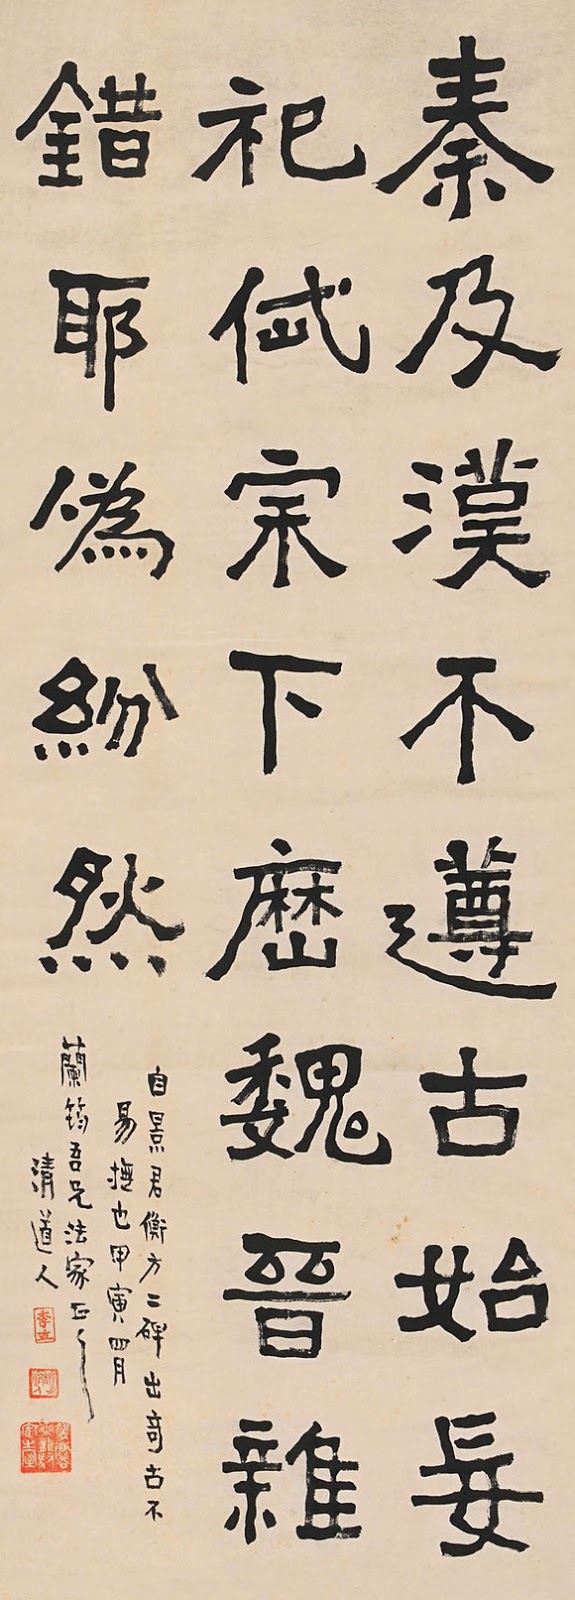 秦及漢不遵古始妄
祀岱宗下歷魏晉雜
錯耶偽紛然
自景君衡方二碑出奇古不
易撫也甲寅四月
蘭筠吾兄法家正之
清道人